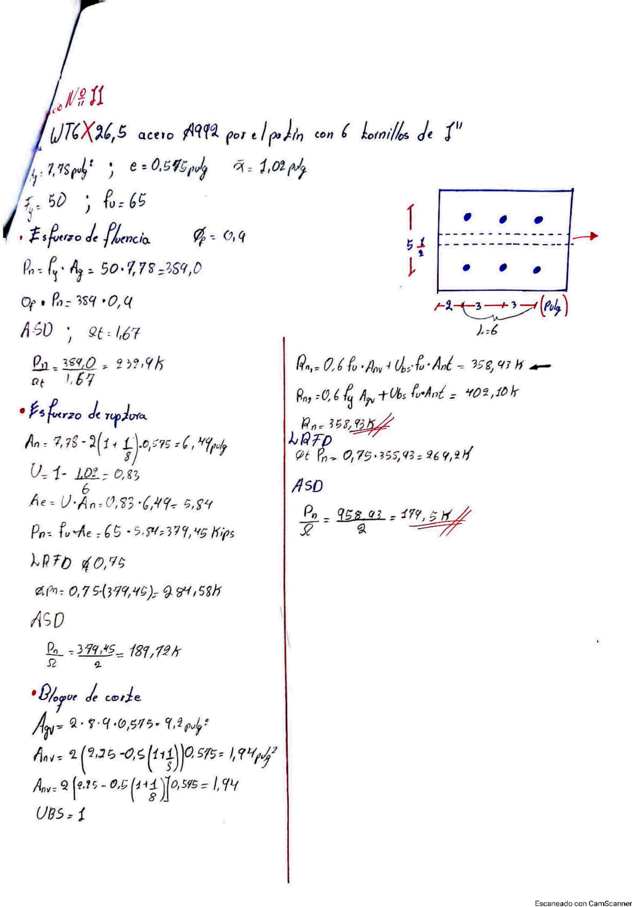 Nº 11
WT6X26,5 acero A992 por el patín con 6 tornillos de 1"
= 7,78 pulg² ; e = 0,575 pulg x̄ = 1,02 pulg
Fy = 50 ; fu = 65
• Esfuerzo de fluencia Øf = 0,9
Pn = fy · Ag = 50 · 7,78 = 389,0
Of • Pn = 389 · 0,9
ASD ; Ωt = 1,67
Pn/Ωt = 389,0/1,67 = 232,9 K
• Esfuerzo de ruptura
An = 7,78 - 2(1 + 1/8) · 0,575 = 6,49 pulg
U = 1 - 1,02/6 = 0,83
Ae = U · An = 0,83 · 6,49 = 5,84
Pn = fu · Ae = 65 · 5,84 = 379,45 Kips
LRFD Ø 0,75
ØPn = 0,75 (379,45) = 284,58 K
ASD
Pn/Ω = 379,45/2 = 189,72 K
• Bloque de corte
Agv = 2 · 8 · 9 · 0,575 = 9,2 pulg²
Anv = 2 (2,25 - 0,5 (1+1/8)) 0,575 = 1,94 pulg²
Anv = 2 [2,25 - 0,5 (1+1/8)] 0,575 = 1,94
UBS = 1
5 1/2
2 3 3 (Pulg)
L=6
Rn1 = 0,6 fu · Anv + Ubs · fu · Ant = 358,93 K ←
Rn2 = 0,6 fy Agv + Ubs fu · Ant = 402,10 K
Rn = 358,93 K
LRFD
Øt Pn = 0,75 · 355,93 = 269,2 K
ASD
Pn/Ω = 958,93/2 = 179,5 K
Escaneado con CamScanner